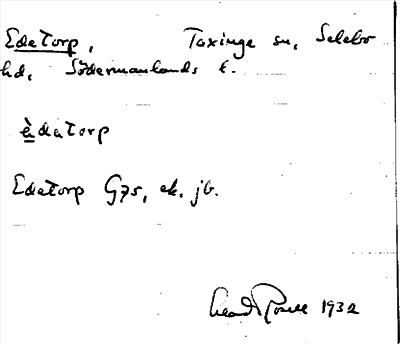 Edetorp, Taxinge sn, Selebo
hd, Södermanlands l.
èdatorp
Edetorp G75, ek. jb.
Rosell 1932